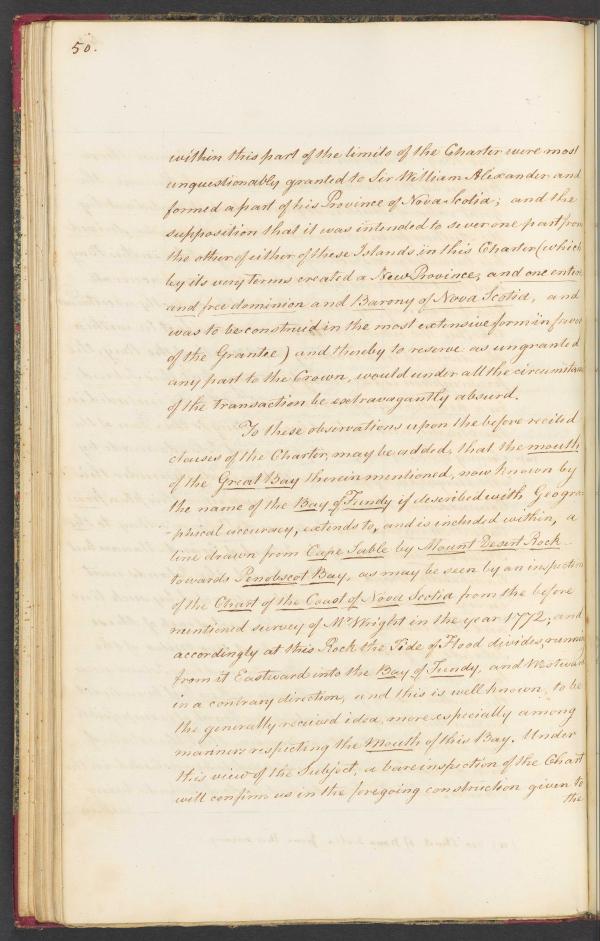 50.
within this part of the limits of the Charter were most
unquestionably granted to Sir William Alexander and
formed a part of his Province of Nova-Scotia; and the
supposition that it was intended to sever one part from
the other of either of these Islands in this Charter (which
by its very terms created a New Province, and one entire
and free dominion and Barony of Nova Scotia, and
was to be construed in the most extensive form in favor
of the Grantee) and thereby to reserve as ungranted
any part to the Crown, would under all the circumstances
of the transaction be extravagantly absurd.
To these observations upon the before recited
clauses of the Charter, may be added, that the mouth
of the Great Bay therein mentioned, now known by
the name of the Bay of Fundy if described with Geogra-
-phical accuracy, extends to, and is included within, a
line drawn from Cape Sable by Mount Desert Rock
towards Penobscot Bay, as may be seen by an inspection
of the Chart of the Coast of Nova Scotia from the before
mentioned survey of Mr Wright in the year 1772, and
accordingly at this Rock the Tide of Flood divides, running
from it Eastward into the Bay of Fundy, and Westward
in a contrary direction, and this is well known, to be
the generally received idea, more especially among
mariners respecting the Mouth of this Bay. Under
this view of the Subject, a bare inspection of the Chart
will confirm us in the foregoing construction given to
the